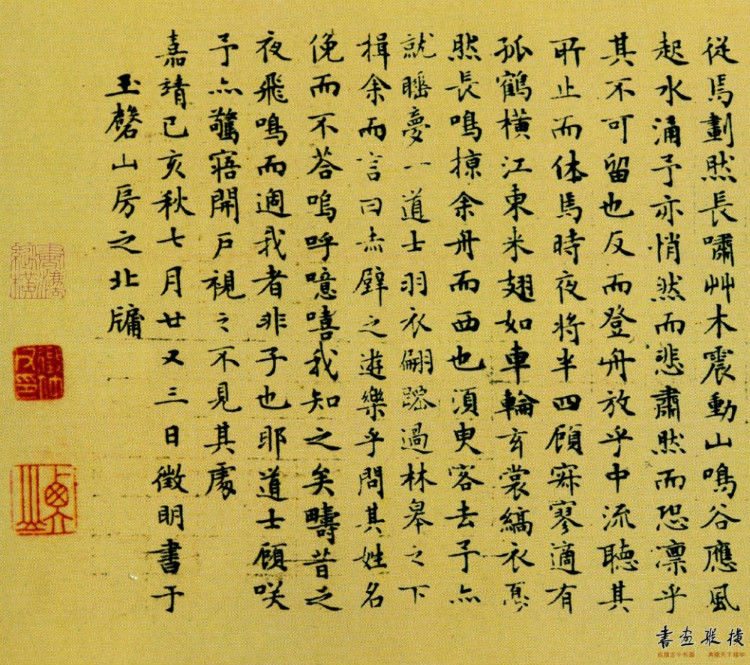 從焉劃然長嘯艸木震動山鳴谷應風
起水涌予亦悄然而悲肅然而恐凛乎
其不可留也反而登舟放乎中流聽其
所止而休焉時夜将半四顧寂寥適有
孤鶴橫江東来翅如車輪玄裳縞衣戛
然長鳴掠余舟而西也須臾客去予亦
就睡夢一道士羽衣翩躚過林皋之下
揖余而言曰赤壁之遊樂乎問其姓名
俛而不荅嗚呼噫嘻我知之矣疇昔之
夜飛鳴而過我者非子也耶道士顧咲
予亦驚寤開戶視之不見其處
嘉靖己亥秋七月廿又三日徵明書于
玉磬山房之北牖
書畫縱横